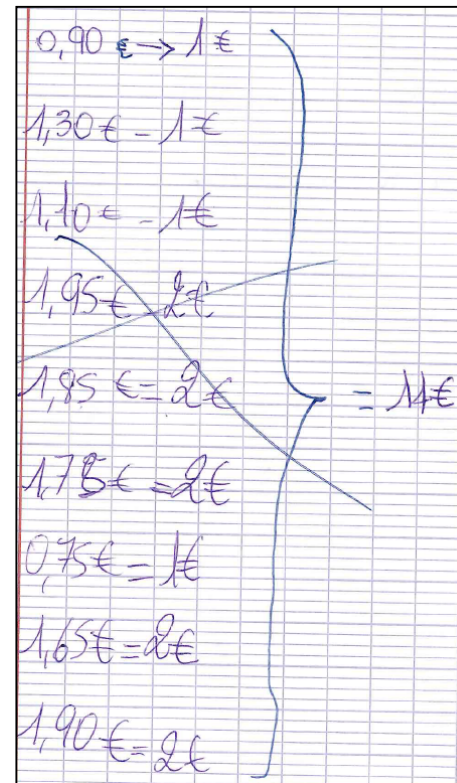 0,90 € → 1 €
1,30 € - 1 €
1,10 € - 1 €
1,95 € 2 €
1,85 € = 2 €
= 14 €
1,75 € = 2 €
0,75 € = 1 €
1,65 € = 2 €
1,90 € = 2 €